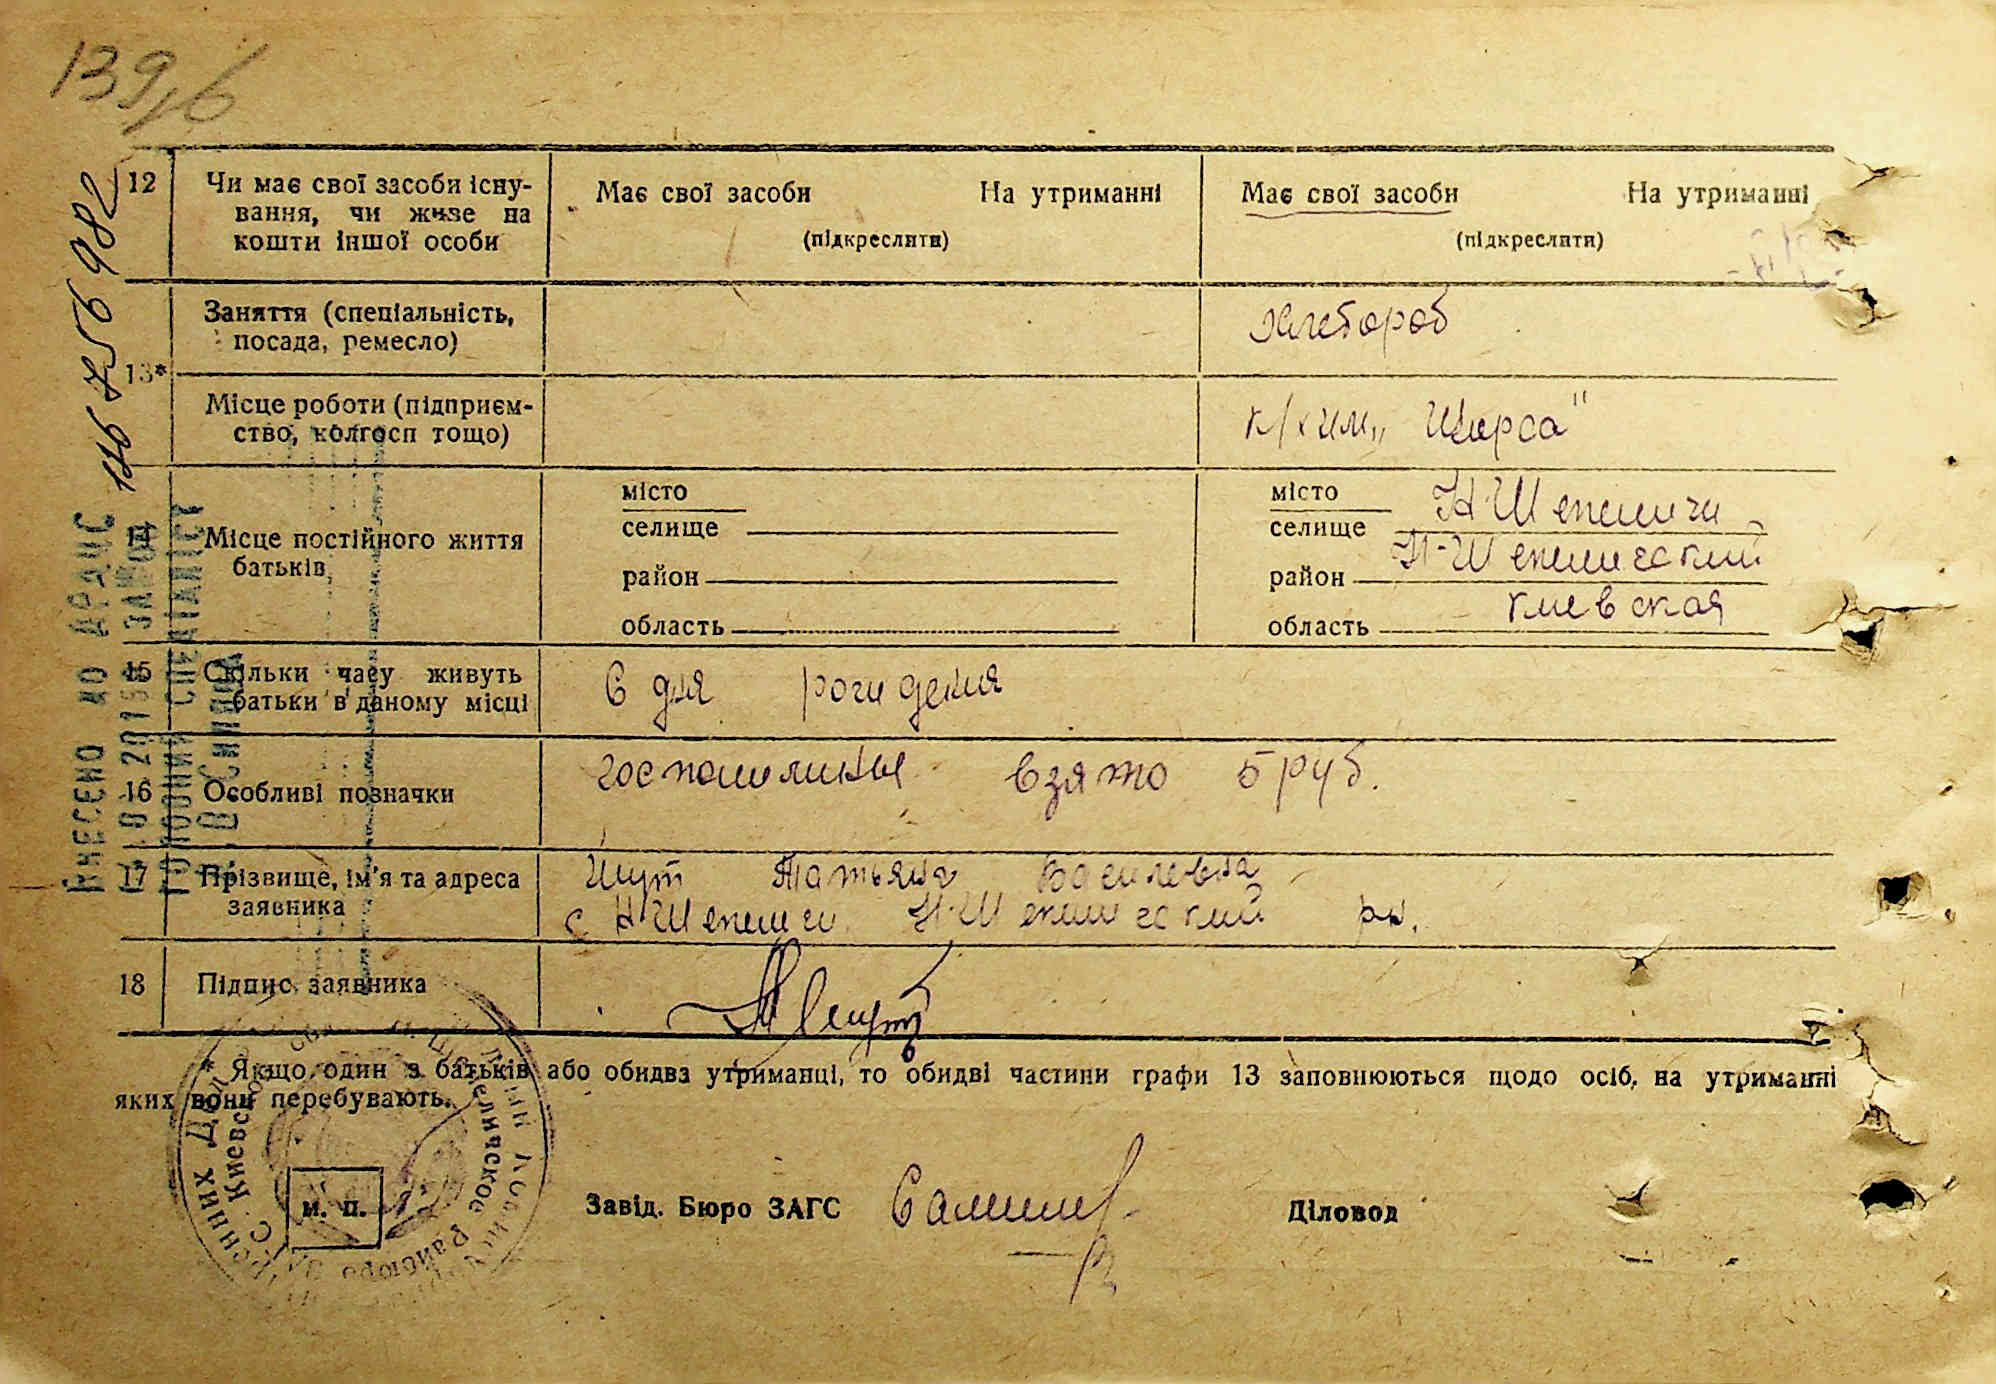 139
116 756 982
12 Чи має свої засоби існу-
вання, чи живе на
кошти іншої особи
Має свої засоби На утриманні
(підкреслити)
Має свої засоби На утриманні
(підкреслити)
13*
Заняття (спеціальність,
посада, ремесло)
хлебороб
Місце роботи (підприєм-
ство, колгосп тощо)
к/х им „Щорса"
14 Місце постійного життя
батьків
місто
селище
район
область
місто Н-Шепеличи
селище
район Н-Шепелический
область Киевская
15 Скільки часу живуть
батьки в даному місці
С дня рождения
16 Особливі позначки
госпошлины взято 5 руб.
17 Прізвище, ім'я та адреса
заявника
Шут Татьяна Василевна
с Н-Шепеличи Н-Шепелический рн.
18 Підпис заявника
* Якщо один з батьків або обидва утриманці, то обидві частини графи 13 заповнюються щодо осіб, на утриманні
яких вони перебувають.
М. П.
Завід. Бюро ЗАГС
Діловод
ВНЕСЕНО ДО ДРАЦС